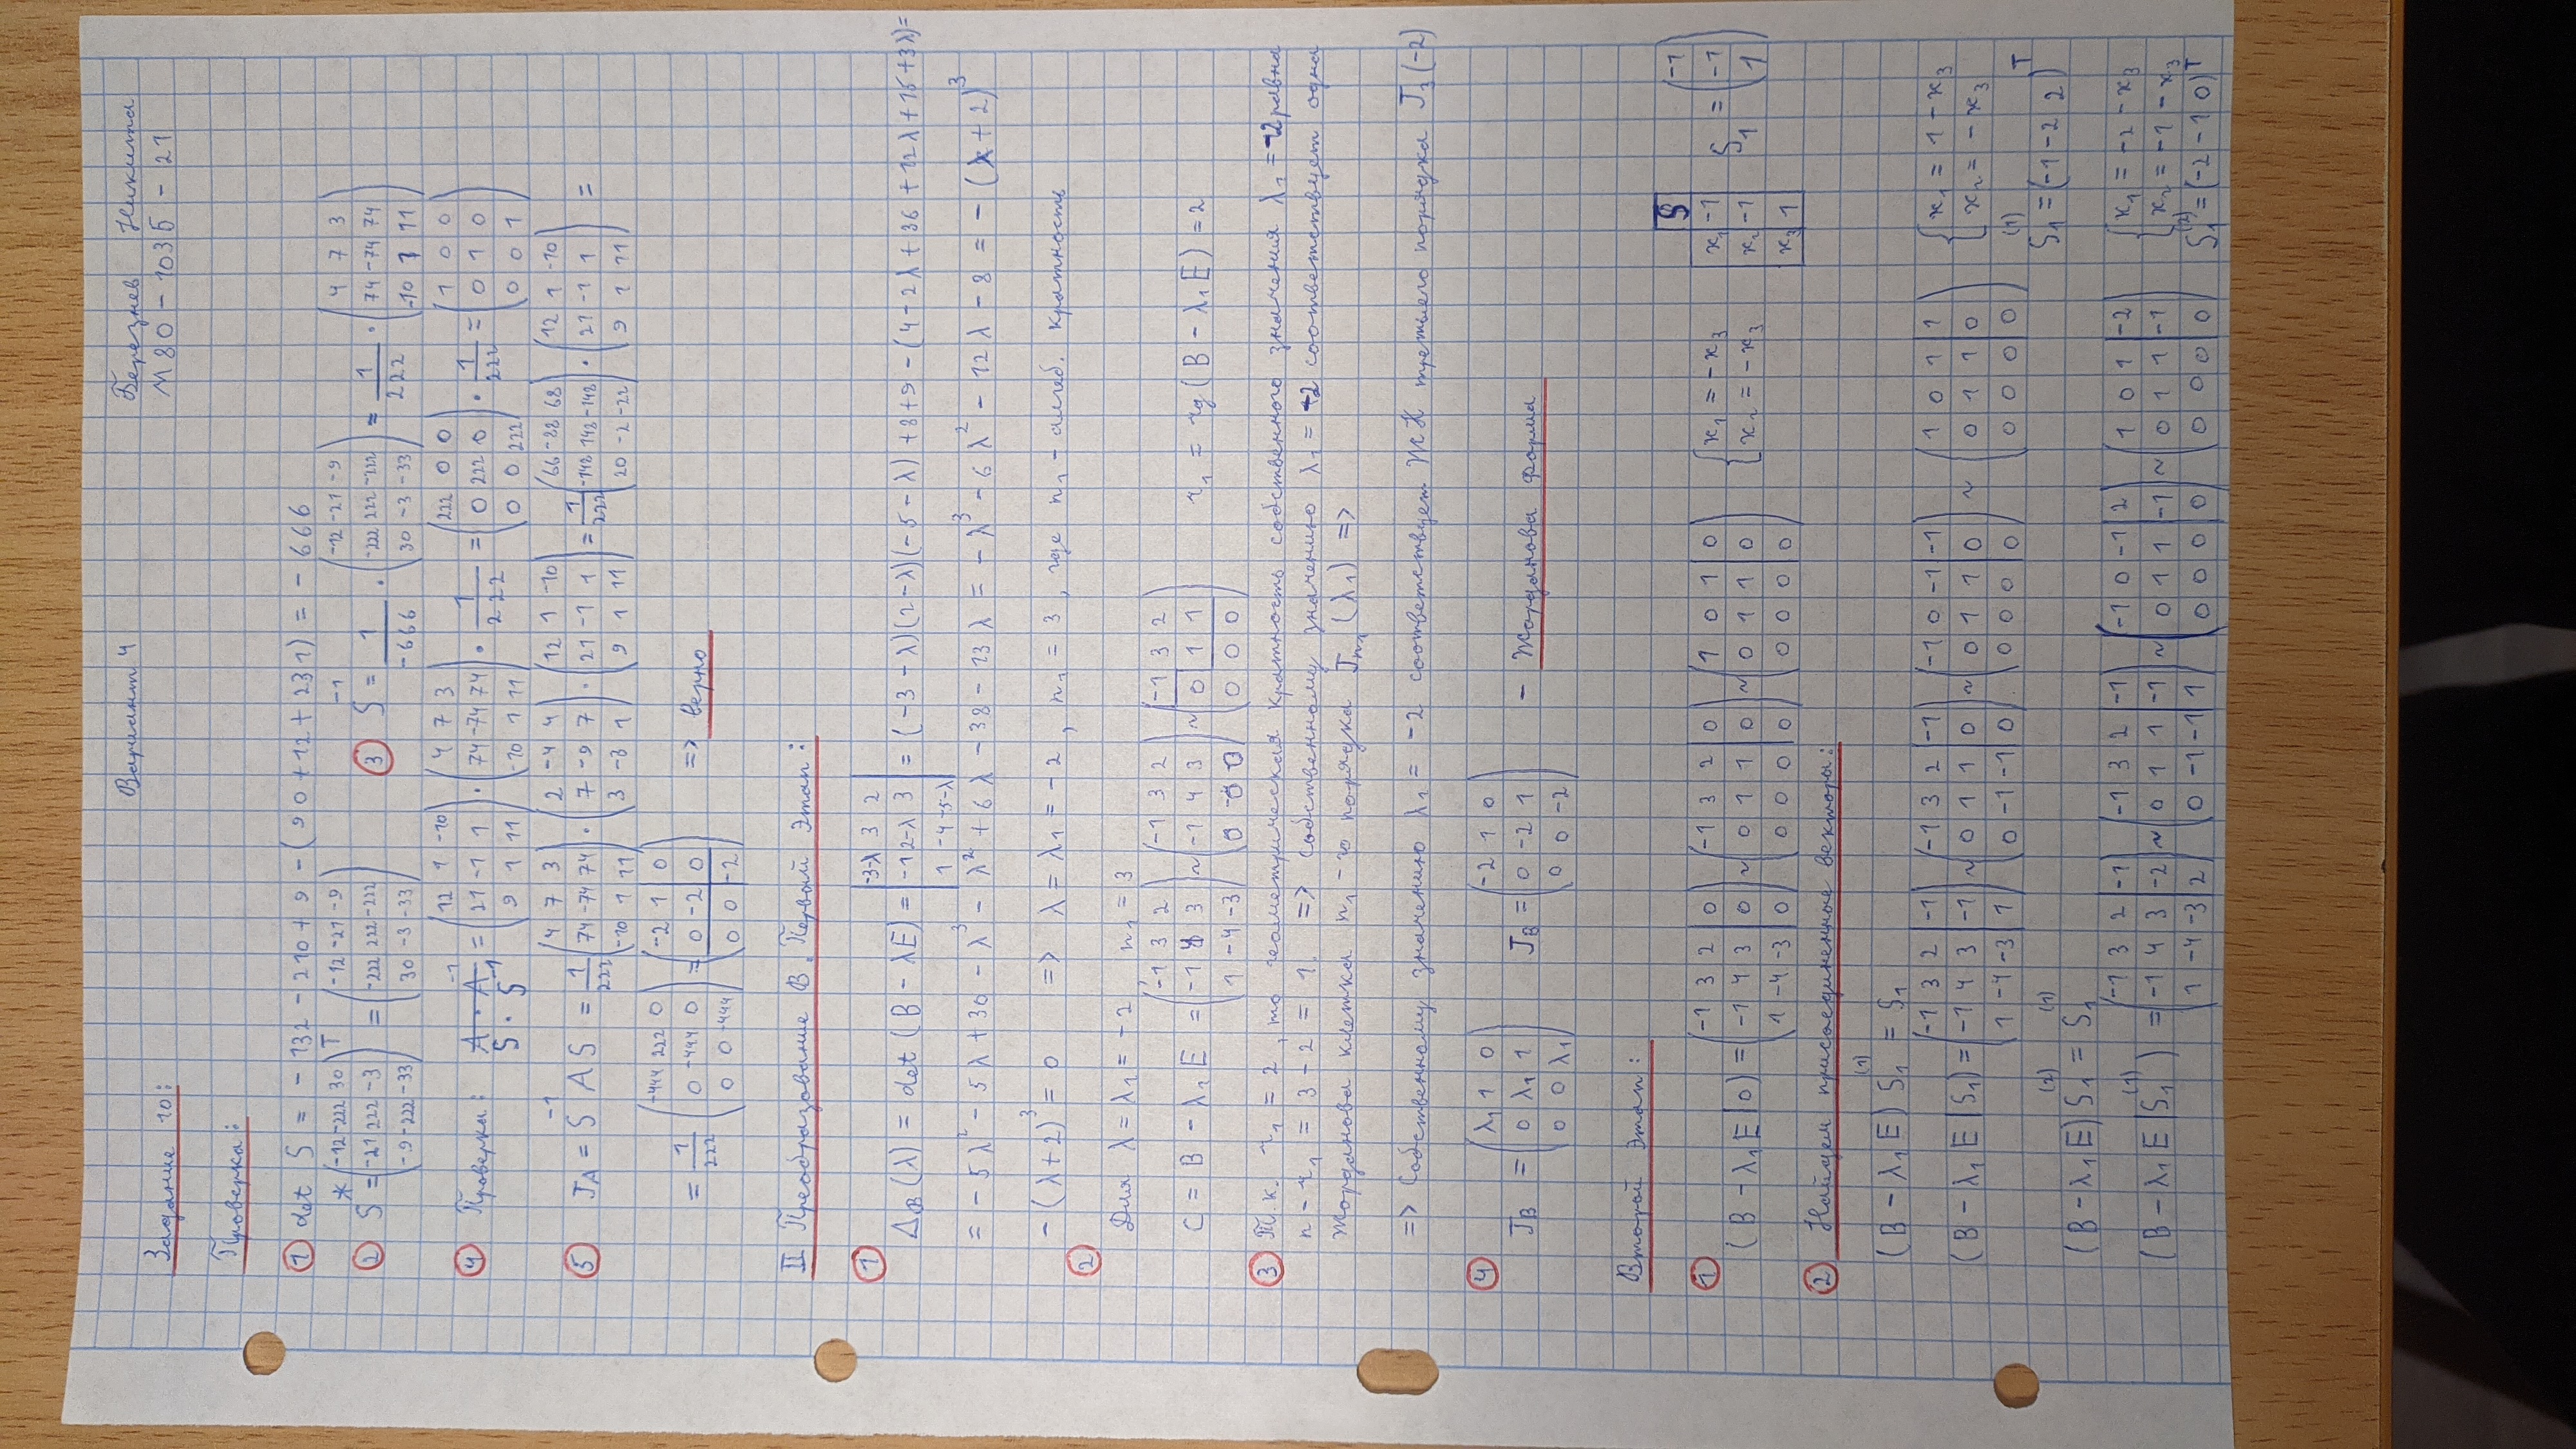 Вариант 4 Березнев Никита
Задание 10: М80-103Б-21
Проверка:
① det S = -132 - 210 + 9 - (90 + 12 + 231) = -666
② S* = (-12 -222 30; -21 222 -3; -9 -222 -33)^T = (-12 -21 -9; -222 222 -222; 30 -3 -33) ③ S^-1 = 1/-666 · (-12 -21 -9; -222 222 -222; 30 -3 -33) = 1/222 · (4 7 3; 74 -74 74; -10 1 11)
④ Проверка: S · S^-1 = (12 1 -10; 21 -1 1; 9 1 11) · (4 7 3; 74 -74 74; -10 1 11) · 1/222 = (222 0 0; 0 222 0; 0 0 222) · 1/222 = (1 0 0; 0 1 0; 0 0 1)
⑤ J_A = S^-1 A S = 1/222 (4 7 3; 74 -74 74; -10 1 11) · (2 -4 4; 7 -9 7; 3 -3 1) · (12 1 -10; 21 -1 1; 9 1 11) = 1/222 (66 -88 68; -148 148 -148; 20 -2 -22) · (12 1 -10; 21 -1 1; 9 1 11) =
= 1/222 (-444 222 0; 0 -444 0; 0 0 -444) = (-2 1 0; 0 -2 0; 0 0 -2) => верно
II Преобразование B. Первый этап:
① Δ_B(λ) = det (B - λE) = |-3-λ 3 2; -1 2-λ 3; 1 -4 -5-λ| = (-3-λ)(2-λ)(-5-λ) + 8 + 9 - (4 - 2λ + 36 + 12λ + 15 + 3λ) =
= -5λ² - 5λ + 30 - λ³ - λ² + 6λ - 38 - 13λ = -λ³ - 6λ² - 12λ - 8 = -(λ+2)³
-(λ+2)³ = 0 => λ = λ₁ = -2, n₁ = 3, где n₁ - алгеб. кратность
② Для λ = λ₁ = -2, n₁ = 3
C = B - λ₁E = (-1 3 2; -1 4 3; 1 -4 -3) ~ (-1 3 2; -1 4 3; 0 0 0) ~ (-1 3 2; 0 1 1; 0 0 0) r₁ = rg(B - λ₁E) = 2
③ Т.к. r₁ = 2, то геометрическая кратность собственного значения λ₁ = -2 равна
n - r₁ = 3 - 2 = 1. => собственному значению λ₁ = -2 соответствует одна
Жорданова клетка n₁-го порядка J_n₁(λ₁) =>
=> собственному значению λ₁ = -2 соответствует ЖК третьего порядка J₃(-2)
④ J_B = (λ₁ 1 0; 0 λ₁ 1; 0 0 λ₁) J_B = (-2 1 0; 0 -2 1; 0 0 -2) - Жорданова форма
Второй этап:
① (B - λ₁E|0) = (-1 3 2 | 0; -1 4 3 | 0; 1 -4 -3 | 0) ~ (-1 3 2 | 0; 0 1 1 | 0; 0 0 0 | 0) ~ (1 0 1 | 0; 0 1 1 | 0; 0 0 0 | 0) {x₁ = -x₃; x₂ = -x₃ S x₁ -1 x₂ -1 x₃ 1 S₁ = (-1; -1; 1)
② Найдем присоединенные векторы:
(B - λ₁E) S₁^(1) = S₁
(B - λ₁E|S₁) = (-1 3 2 | -1; -1 4 3 | -1; 1 -4 -3 | 1) ~ (-1 3 2 | -1; 0 1 1 | 0; 0 -1 -1 | 0) ~ (-1 0 -1 | -1; 0 1 1 | 0; 0 0 0 | 0) ~ (1 0 1 | 1; 0 1 1 | 0; 0 0 0 | 0) {x₁ = 1 - x₃; x₂ = -x₃
S₁^(1) = (-1 -2 2)^T
(B - λ₁E) S₁^(2) = S₁^(1)
(B - λ₁E|S₁^(1)) = (-1 3 2 | -1; -1 4 3 | -2; 1 -4 -3 | 2) ~ (-1 3 2 | -1; 0 1 1 | -1; 0 -1 -1 | 1) ~ (-1 0 -1 | 2; 0 1 1 | -1; 0 0 0 | 0) ~ (1 0 1 | -2; 0 1 1 | -1; 0 0 0 | 0) {x₁ = -2 - x₃; x₂ = -1 - x₃
S₁^(2) = (-2 -1 0)^T